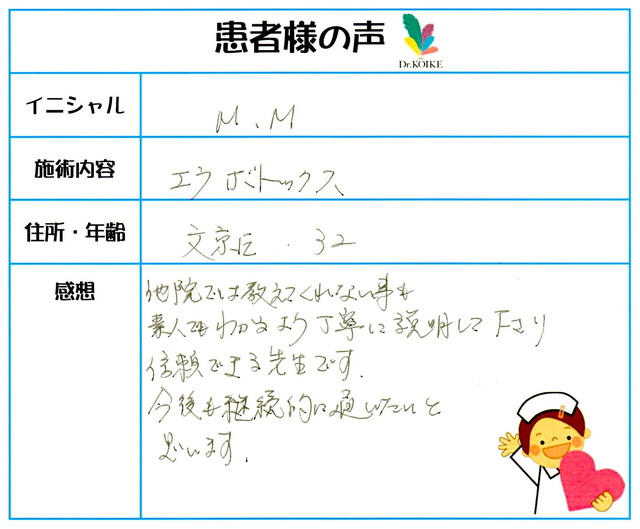 患者様の声
Dr.KOIKE
イニシャル
M.M
施術内容
エラボトックス
住所・年齢
文京区.32
感想
他院では教えてくれない事も
素人でもわかるよう丁寧に説明して下さり
信頼できる先生です.
今後も継続的に通いたいと
思います.